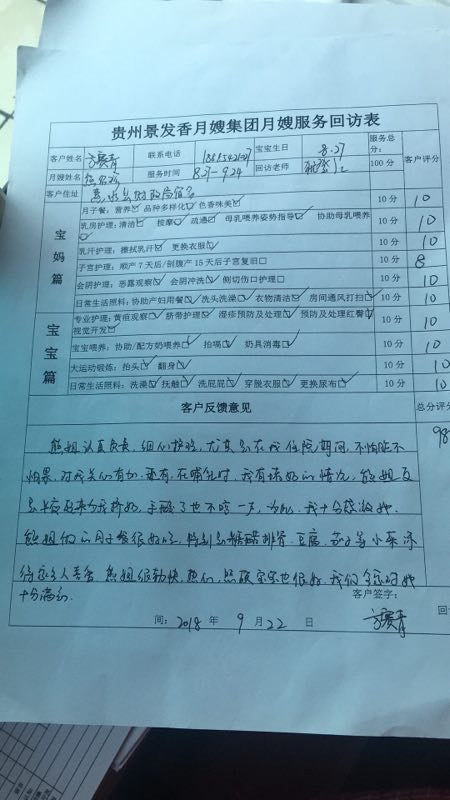 贵州景发香月嫂集团月嫂服务回访表
客户姓名 方赛青 联系电话 宝宝生日 8.27 服务总分: 客户评分
月嫂姓名 服务时间 8.27-9.24 回访老师 100分
客户住址
宝妈篇
月子餐:营养☑ 品种多样化☑ 色香味美☑ 10分 10
乳房护理:清洁☑ 按摩☑ 疏通☑ 母乳喂养姿势指导☑ 协助母乳喂养☑ 10分 10
乳汁护理:擦拭乳汗☑ 更换衣服☑ 10分 10
子宫护理:顺产7天后/剖腹产15天后子宫复旧□ 10分 8
会阴护理:恶露观察☑ 会阴冲洗☑ 侧切伤口护理□ 10分 10
日常生活照料:协助产妇用餐☑ 洗头洗澡☑ 衣物清洁☑ 房间通风打扫☑ 10分 10
宝宝篇
专业护理:黄疸观察☑ 脐带护理☑ 湿疹预防及处理☑ 预防及处理红臀☑ 视觉开发☑ 10分 10
宝宝喂养:协助/配方奶喂养☑ 拍嗝☑ 奶具消毒☑ 10分 10
大运动锻炼:抬头☑ 翻身☑ 10分 10
日常生活照料:洗澡☑ 抚触☑ 洗屁屁☑ 穿脱衣服☑ 更换尿布☑ 10分 10
客户反馈意见 总分评分
98
熊姐认真负责,细心护理,尤其是在我住院期间,不怕脏不
怕累,对我关心有加,还有,在哺乳时,我有堵奶的情况,熊姐
起来为我挤奶,手酸了也不哼一声,为此,我十分感激她.
熊姐做的月子餐很好吃,特别是糖醋排骨、豆腐、等小菜深
得家人喜爱,熊姐很勤快,热心,照顾宝宝也很好,我们全家对她
十分满意.
客户签字:
间:2018年 9月22日 方赛青 回